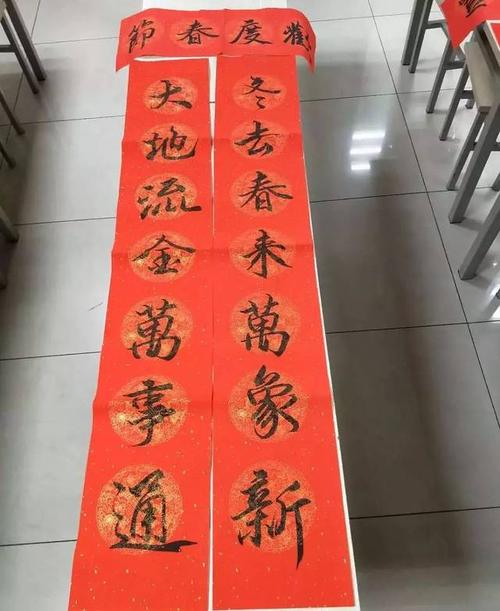 歡度春節
冬去春来萬象新
大地流金萬事通